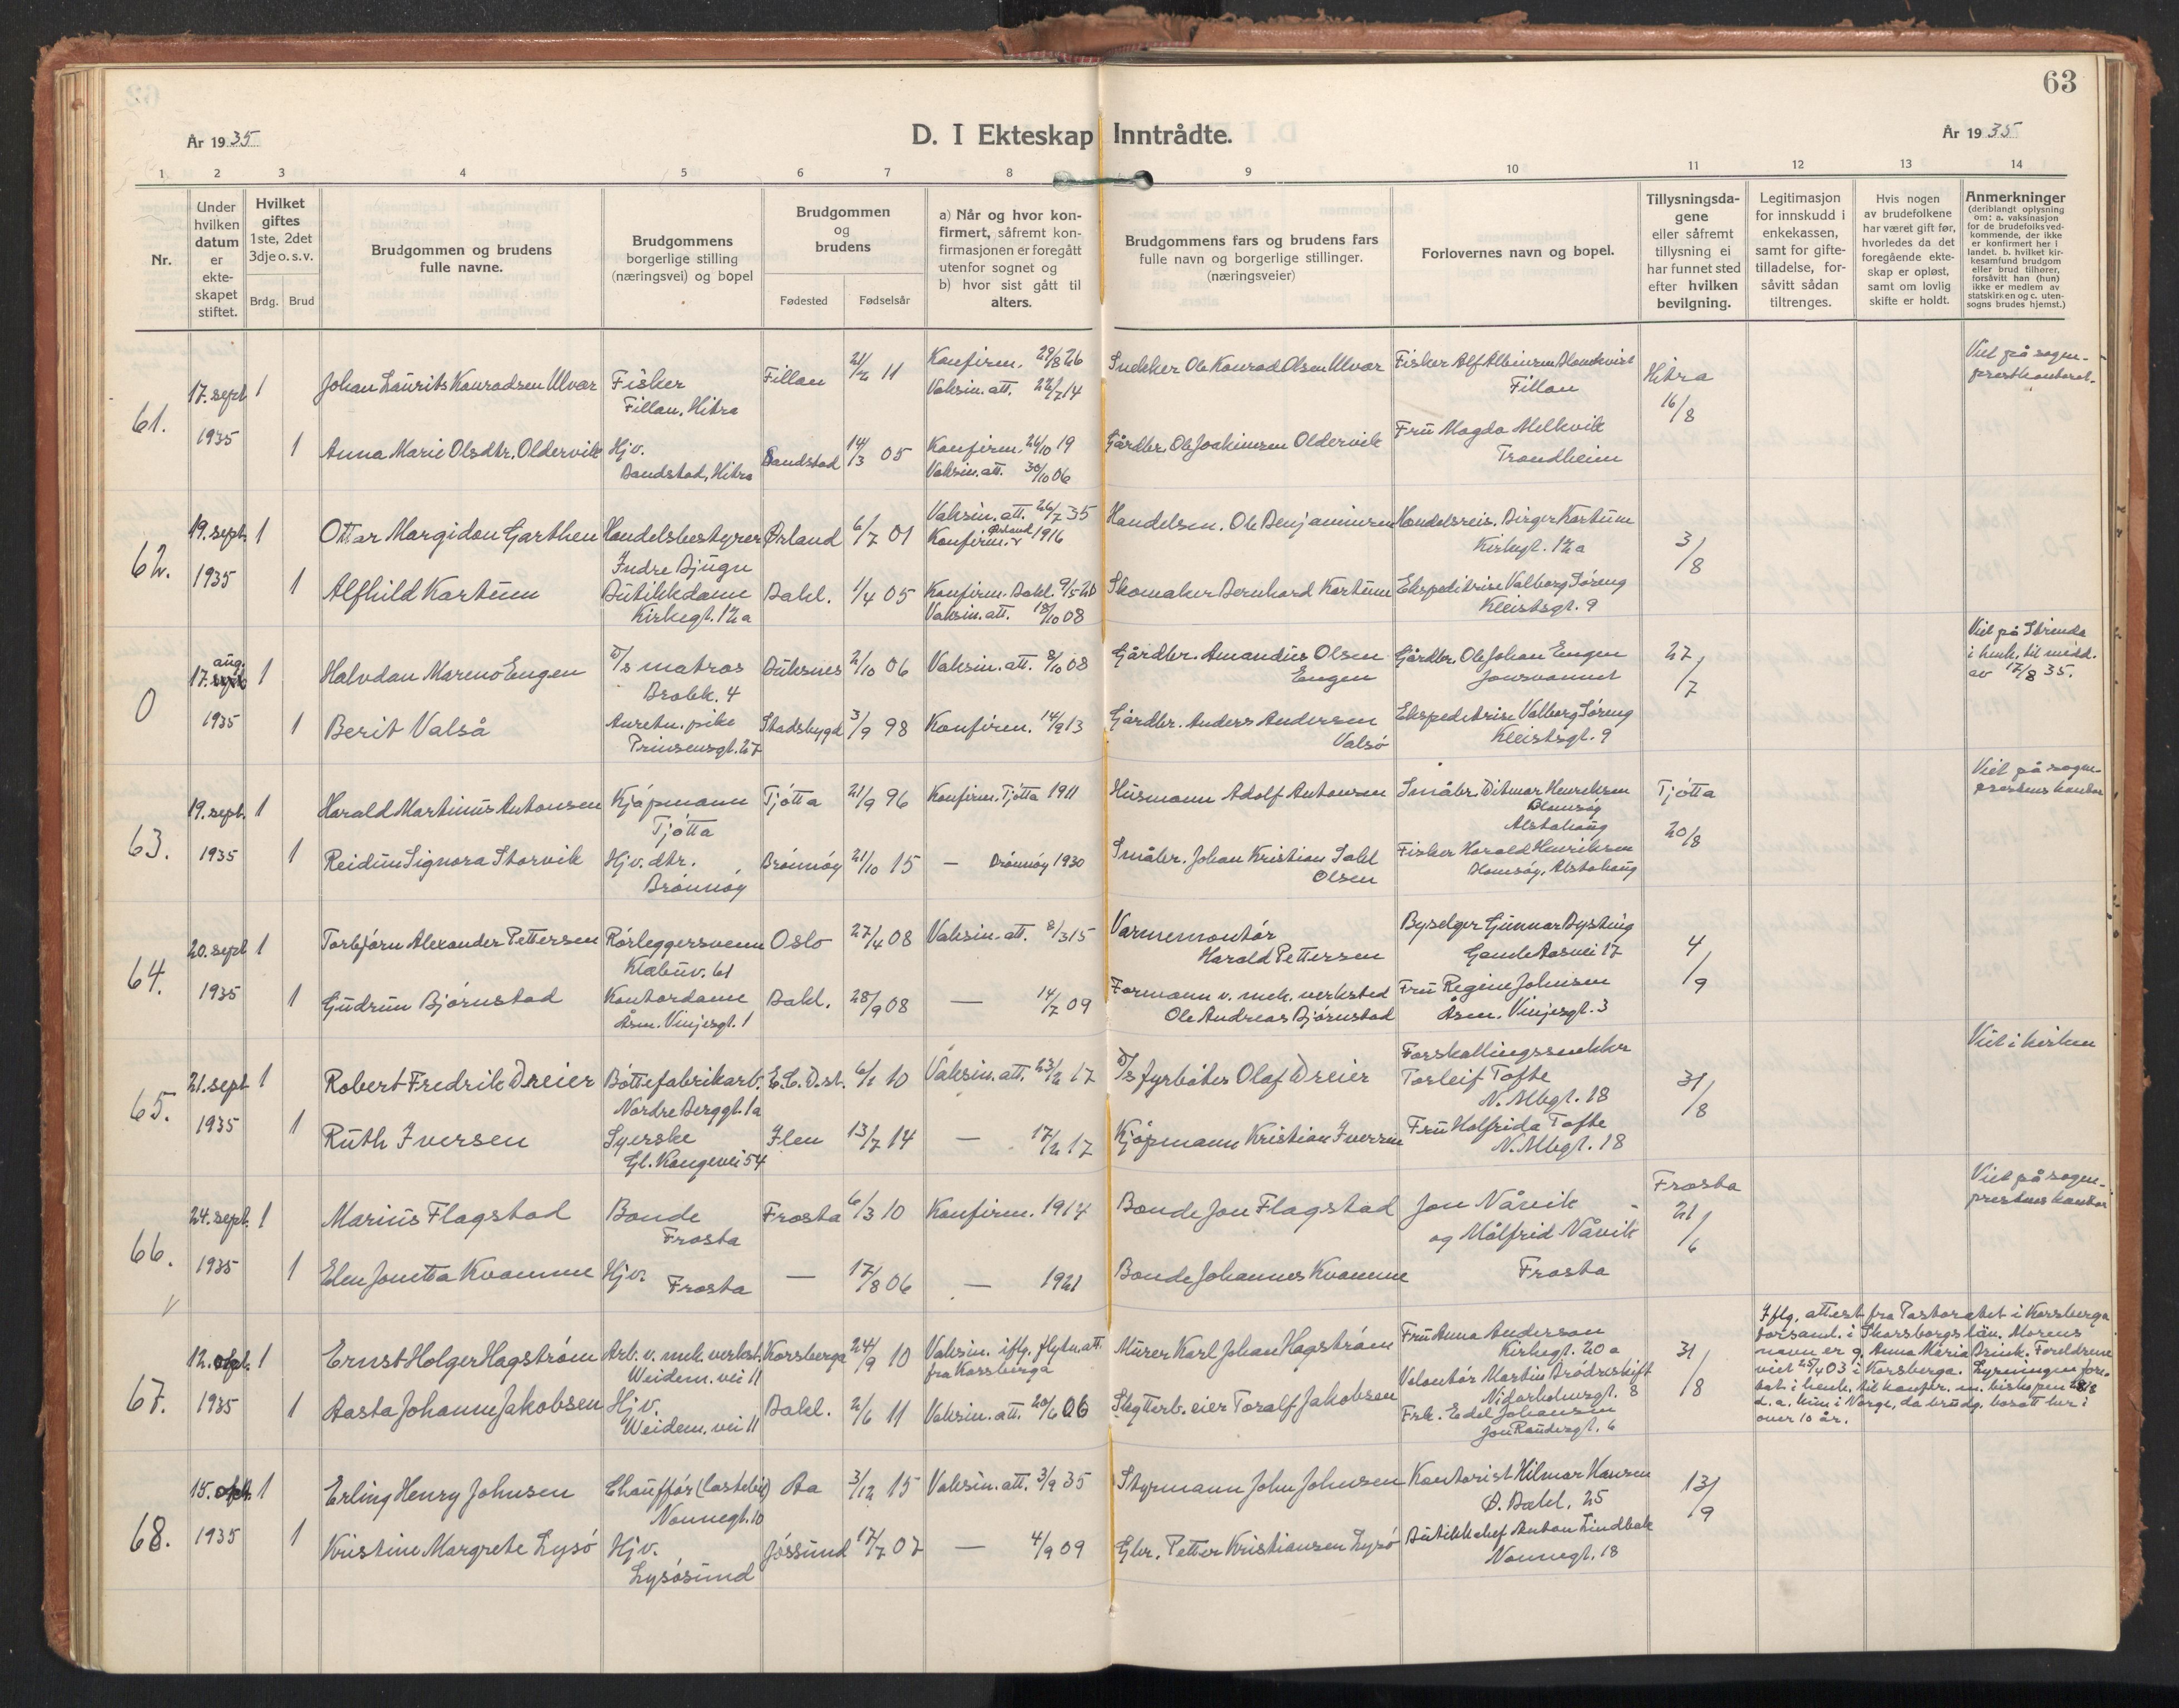 63
År 1935
D. I Ekteskap Inntrådte.
År 1935
1 2 3 4 5 6 7 8 9 10 11 12 13 14
Nr.
Under hvilken datum er ekteskapet stiftet.
Hvilket giftes 1ste, 2det 3dje o. s. v.
Brdg. Brud
Brudgommen og brudens fulle navne.
Brudgommens borgerlige stilling (næringsvei) og bopel
Brudgommen og brudens
Fødested Fødselsår
a) Når og hvor konfirmert, såfremt konfirmasjonen er foregått utenfor sognet og
b) hvor sist gått til alters.
Brudgommens fars og brudens fars fulle navn og borgerlige stillinger. (næringsveier)
Forlovernes navn og bopel.
Tillysningsdagene eller såfremt tillysning ei har funnet sted efter hvilken bevilgning.
Legitimasjon for innskudd i enkekassen, samt for giftetilladelse, forsåvitt sådan tiltrenges.
Hvis nogen av brudefolkene har været gift før, hvorledes da det foregående ekteskap er opløst, samt om lovlig skifte er holdt.
Anmerkninger (deriblandt oplysning om: a. vaksinasjon for de brudefolks vedkommende, der ikke er konfirmert her i landet. b. hvilket kirkesamfund brudgom eller brud tilhører, forsåvitt han (hun) ikke er medlem av statskirken og c. utensogns brudes hjemst.)
61.
17. sept 1 Johan Laurits Konradsen Ulvær Fisker Fillan, Hitra Fillan 21/2 11 Konfirm. 29/8 26 Vaksin. att. 22/7 14 Snekker Ole Konrad Olsen Ulvær Fisker Alf Albinsen Fillan Hitra 16/8 Viet på sogneprestkontoret.
1935 1 Anna Marie Olsdtr. Oldervik Hjv. Sandstad, Hitra Sandstad 14/3 05 Konfirm. 26/10 19 Vaksin. att. 30/10 06 Gårdbr. Ole Joakimsen Oldervik Fru Magda Melkvik Trondheim
62.
19. sept. 1 Ottar Margidon Garthen Handelsbestyrer Indre Bjugn Ørland 6/7 01 Vaksin. att. 26/7 35 Konfirm. Ørland 1916 Handelsm. Ole Benjaminsen Handelsreis. Birger Kartum Kirkegt. 12a 3/8
1935 1 Alfhild Kartum Butikkdame Kirkegt. 12a Bakl. 1/4 05 Konfirm. Bakl. 9/5 20 Vaksin. att. 18/10 08 Skomaker Bernhard Kartum Ekspeditrise Valborg Søreng Kleistsgt. 9
0
17. aug. 1 Halvdan Mareno Engen D/s matros Brobk. 4 Buksnes 2/10 06 Vaksin. att. 8/10 08 Gårdbr. Amandus Olsen Engen Gårdbr. Ole Johan Engen Jonsvannet 27/7 Viet på Strinda i henh. til medd. av 17/8 35.
1935 1 Berit Valså Anretn. pike Prinsensgt. 27 Stadsbygd 3/9 98 Konfirm. 14/9 13 Gårdbr. Anders Andersen Valsø Ekspeditrise Valborg Søreng Kleistsgt. 9
63.
19. sept. 1 Harald Martinus Antonsen Kjøpmann Tjøtta Tjøtta 21/9 96 Konfirm. Tjøtta 1911 Husmann Adolf Antonsen Småbr. Ditmar Henriksen Blomsøy Alstahaug Tjøtta 20/8 Viet på sogneprestens kontor
1935 1 Reidun Signora Storvik Hjv. dtr. Brønnøy Brønnøy 21/10 15 — Brønnøy 1930 Småbr. Johan Kristian Dahl Olsen Fisker Harald Henriksen Blomsøy, Alstahaug
64.
20. sept 1 Torbjørn Alexander Pettersen Rørleggersvenn Klæbuv. 61 Oslo 27/4 08 Vaksin. att. 8/3 15 Varmemontør Harald Pettersen Byselger Gunnar Dysting Gamle Aasvei 17 4/9
1935 1 Gudrun Bjørnstad Kontordame Åsm. Vinjesgt. 1 Bakl. 28/9 08 — 14/7 09 Formann v. mek. verksted Ole Andreas Bjørnstad Fru Regine Johnsen Åsm. Vinjesgt. 3
65.
21. sept 1 Robert Fredrik Dreier Bøttefabrikarb. Nordre Berggt. 1a E.C.D.st. 6/1 10 Vaksin. att. 23/2 17 D/s fyrbøter Olaf Dreier Forskallingssnekker Torleif Tofte N. Mbgt. 18 31/8 Viet i kirken
1935 1 Ruth Iversen Syerske Gl. Kongevei 54 Ilen 13/7 14 — 17/2 17 Kjøpmann Kristian Iversen Fru Halfrida Tofte N. Mbgt. 18
66.
24. sept. 1 Marius Flagstad Bonde Frosta Frosta 6/3 10 Konfirm. 1914 Bonde Jon Flagstad Jon Nåvik og Målfrid Nåvik Frosta 21/6 Viet på sogneprestens kontor
1935 1 Elen Jonetta Kvamme Hjv. Frosta — 17/8 06 — 1921 Bonde Johannes Kvamme Frosta
67.
12. 1 Ernst Holger Hagstrøm Arb. v. mek. verkst. Weidem. vei 11 Korsberga 24/9 10 Vaksin. iflg. flytn. att. fra Korsberga Murer Karl Johan Hagstrøm Fru Anna Anderson Kirkegt. 20a 31/8
1935 1 Aasta Johanne Jakobsen Hjv. Weidem. vei 11 Bakl. 2/6 11 Vaksin. att. 20/6 06 Slytterb. eier Toralf Jakobsen Volontør Martin Brødreskift Nidarholmsgt. 8 Frk. Edel Johansen Jon Raudesgt. 6
Iflg. attest fra Pastoratet i Korsberga
forsaml. i Skarsborgs län. Morens
navn er g. Anna Maria Brink. Foreldrene
viet 25/4 03 i Korsberga. Lysningen foretatt
i henh. til konfr. m. biskopen 28/8
d. a. kun i Norge, da brudg. bosatt her i
over 10 år.
68.
15. 1 Erling Henry Johnsen Chauffør (lastebil) Nonnegt. 10 Aa 3/12 15 Vaksin. att. 3/9 35 Styrmann John Johnsen Kontorist Hilmar Hansen Ø. Bakl. 25 13/9
1935 1 Kristine Margrete Lysø Hjv. Lysøsund Jøssund 17/7 07 — 4/9 09 Gbr. Petter Kristiansen Lysø Butikkchef Anton Lindbak Nonnegt. 18